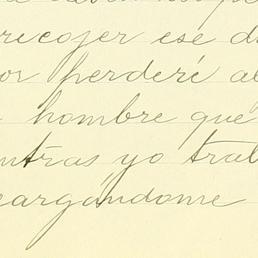 recojer ese d
or perderé al
hombre qué
ntras yo tral
cargándome